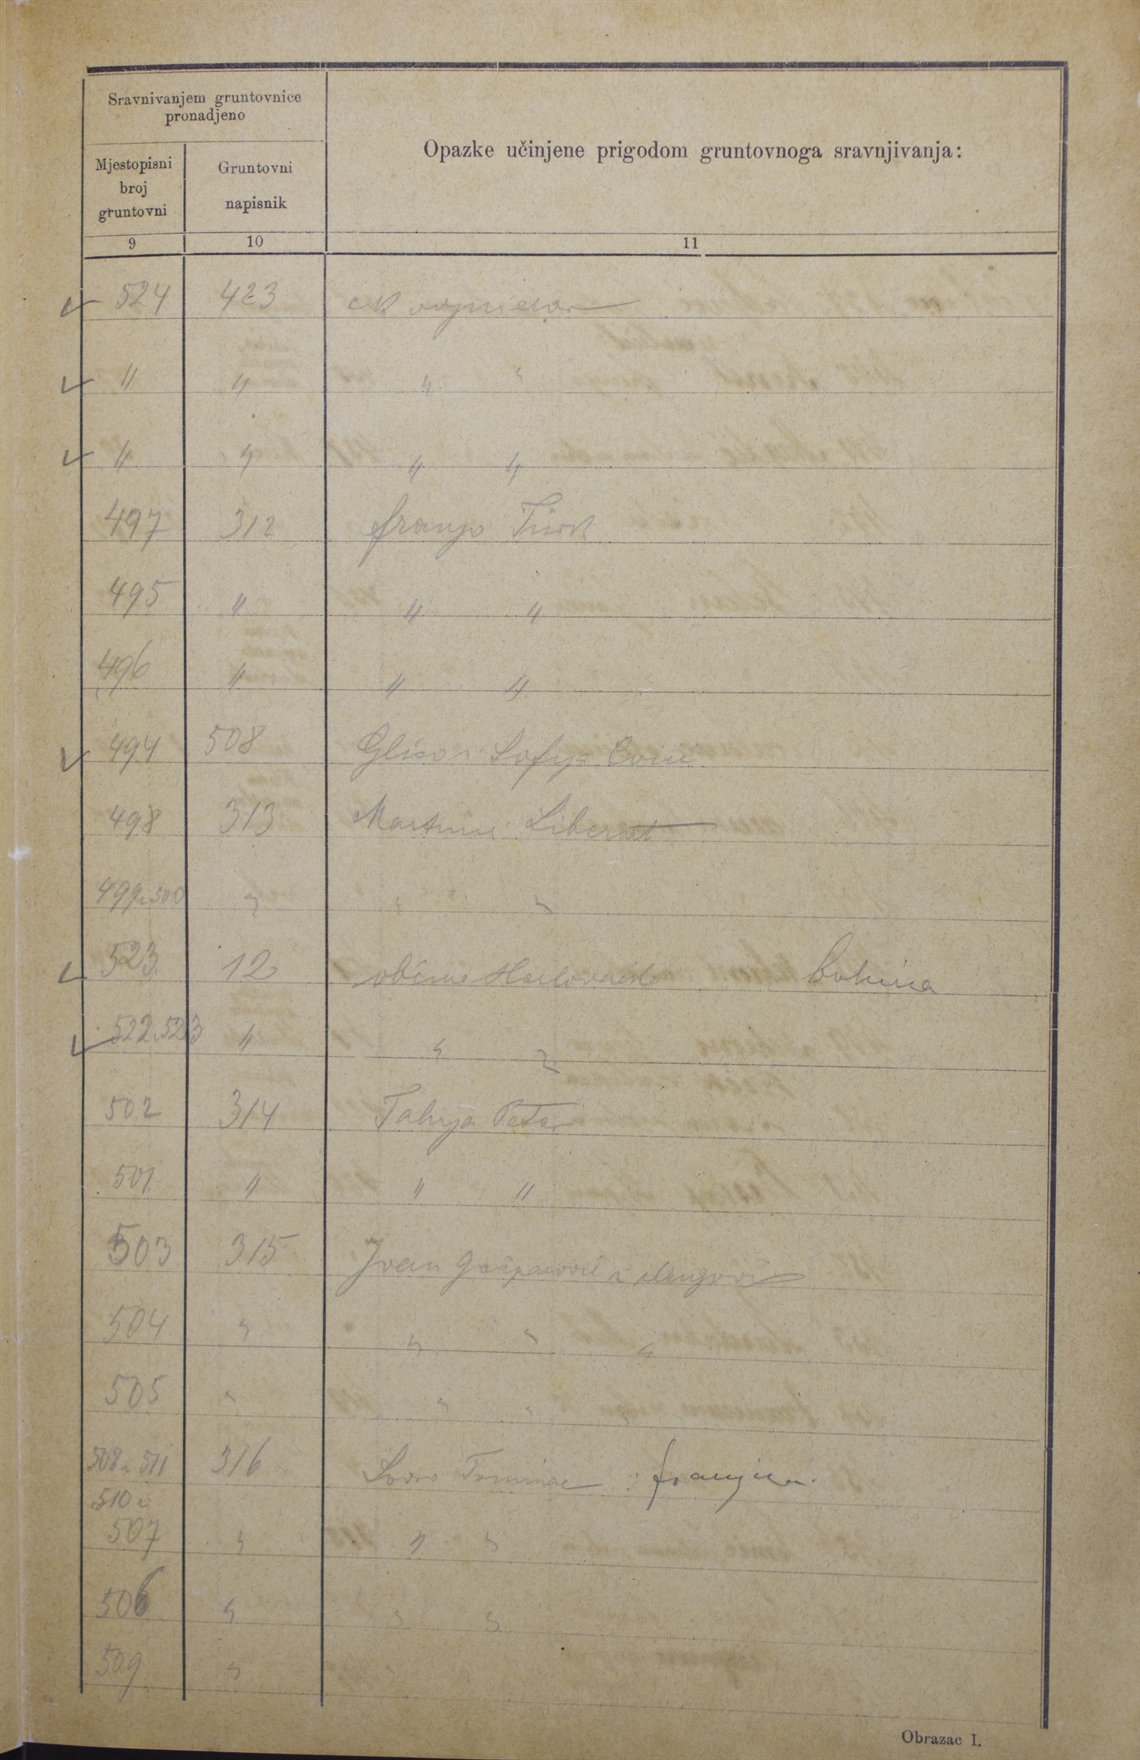 Sravnivanjem gruntovnice
pronadjeno
Opazke učinjene prigodom gruntovnoga sravnjivanja:
Mjestopisni
broj
gruntovni
Gruntovni
napisnik
9 10 11
524 423
" " " "
" " " "
497 312 Franjo Türk
495 " " "
496 " " "
494 508 Gliso i Sofija
498 313 Martin Liberat
499 i 500 " " "
523 12 občina
522 i 523 " " "
502 314 Petar
501 " " "
503 315 Ivan Gašparović i drugovi
504 " " " "
505 " " " "
508 i 511 316 Lovro Tominac i Franjica
510 i
507 " " "
506 " " "
509 " "
Obrazac I.